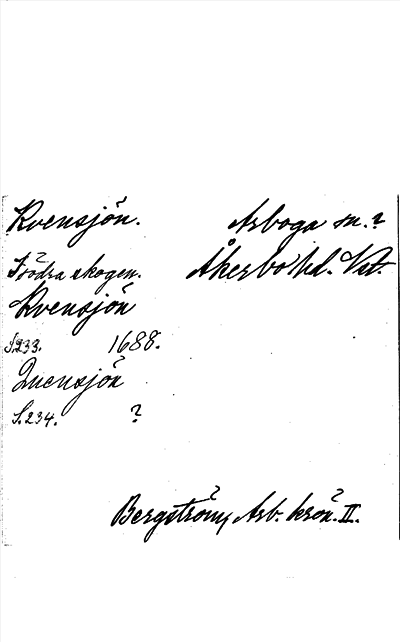 Kvensjön. Arboga sn.?
I södra skogen. Åkerbo hd. Vst.
Kvensjön
S.233. 1688.
Quensjön
S.234. ?
Bergström, Arb. krön. II.